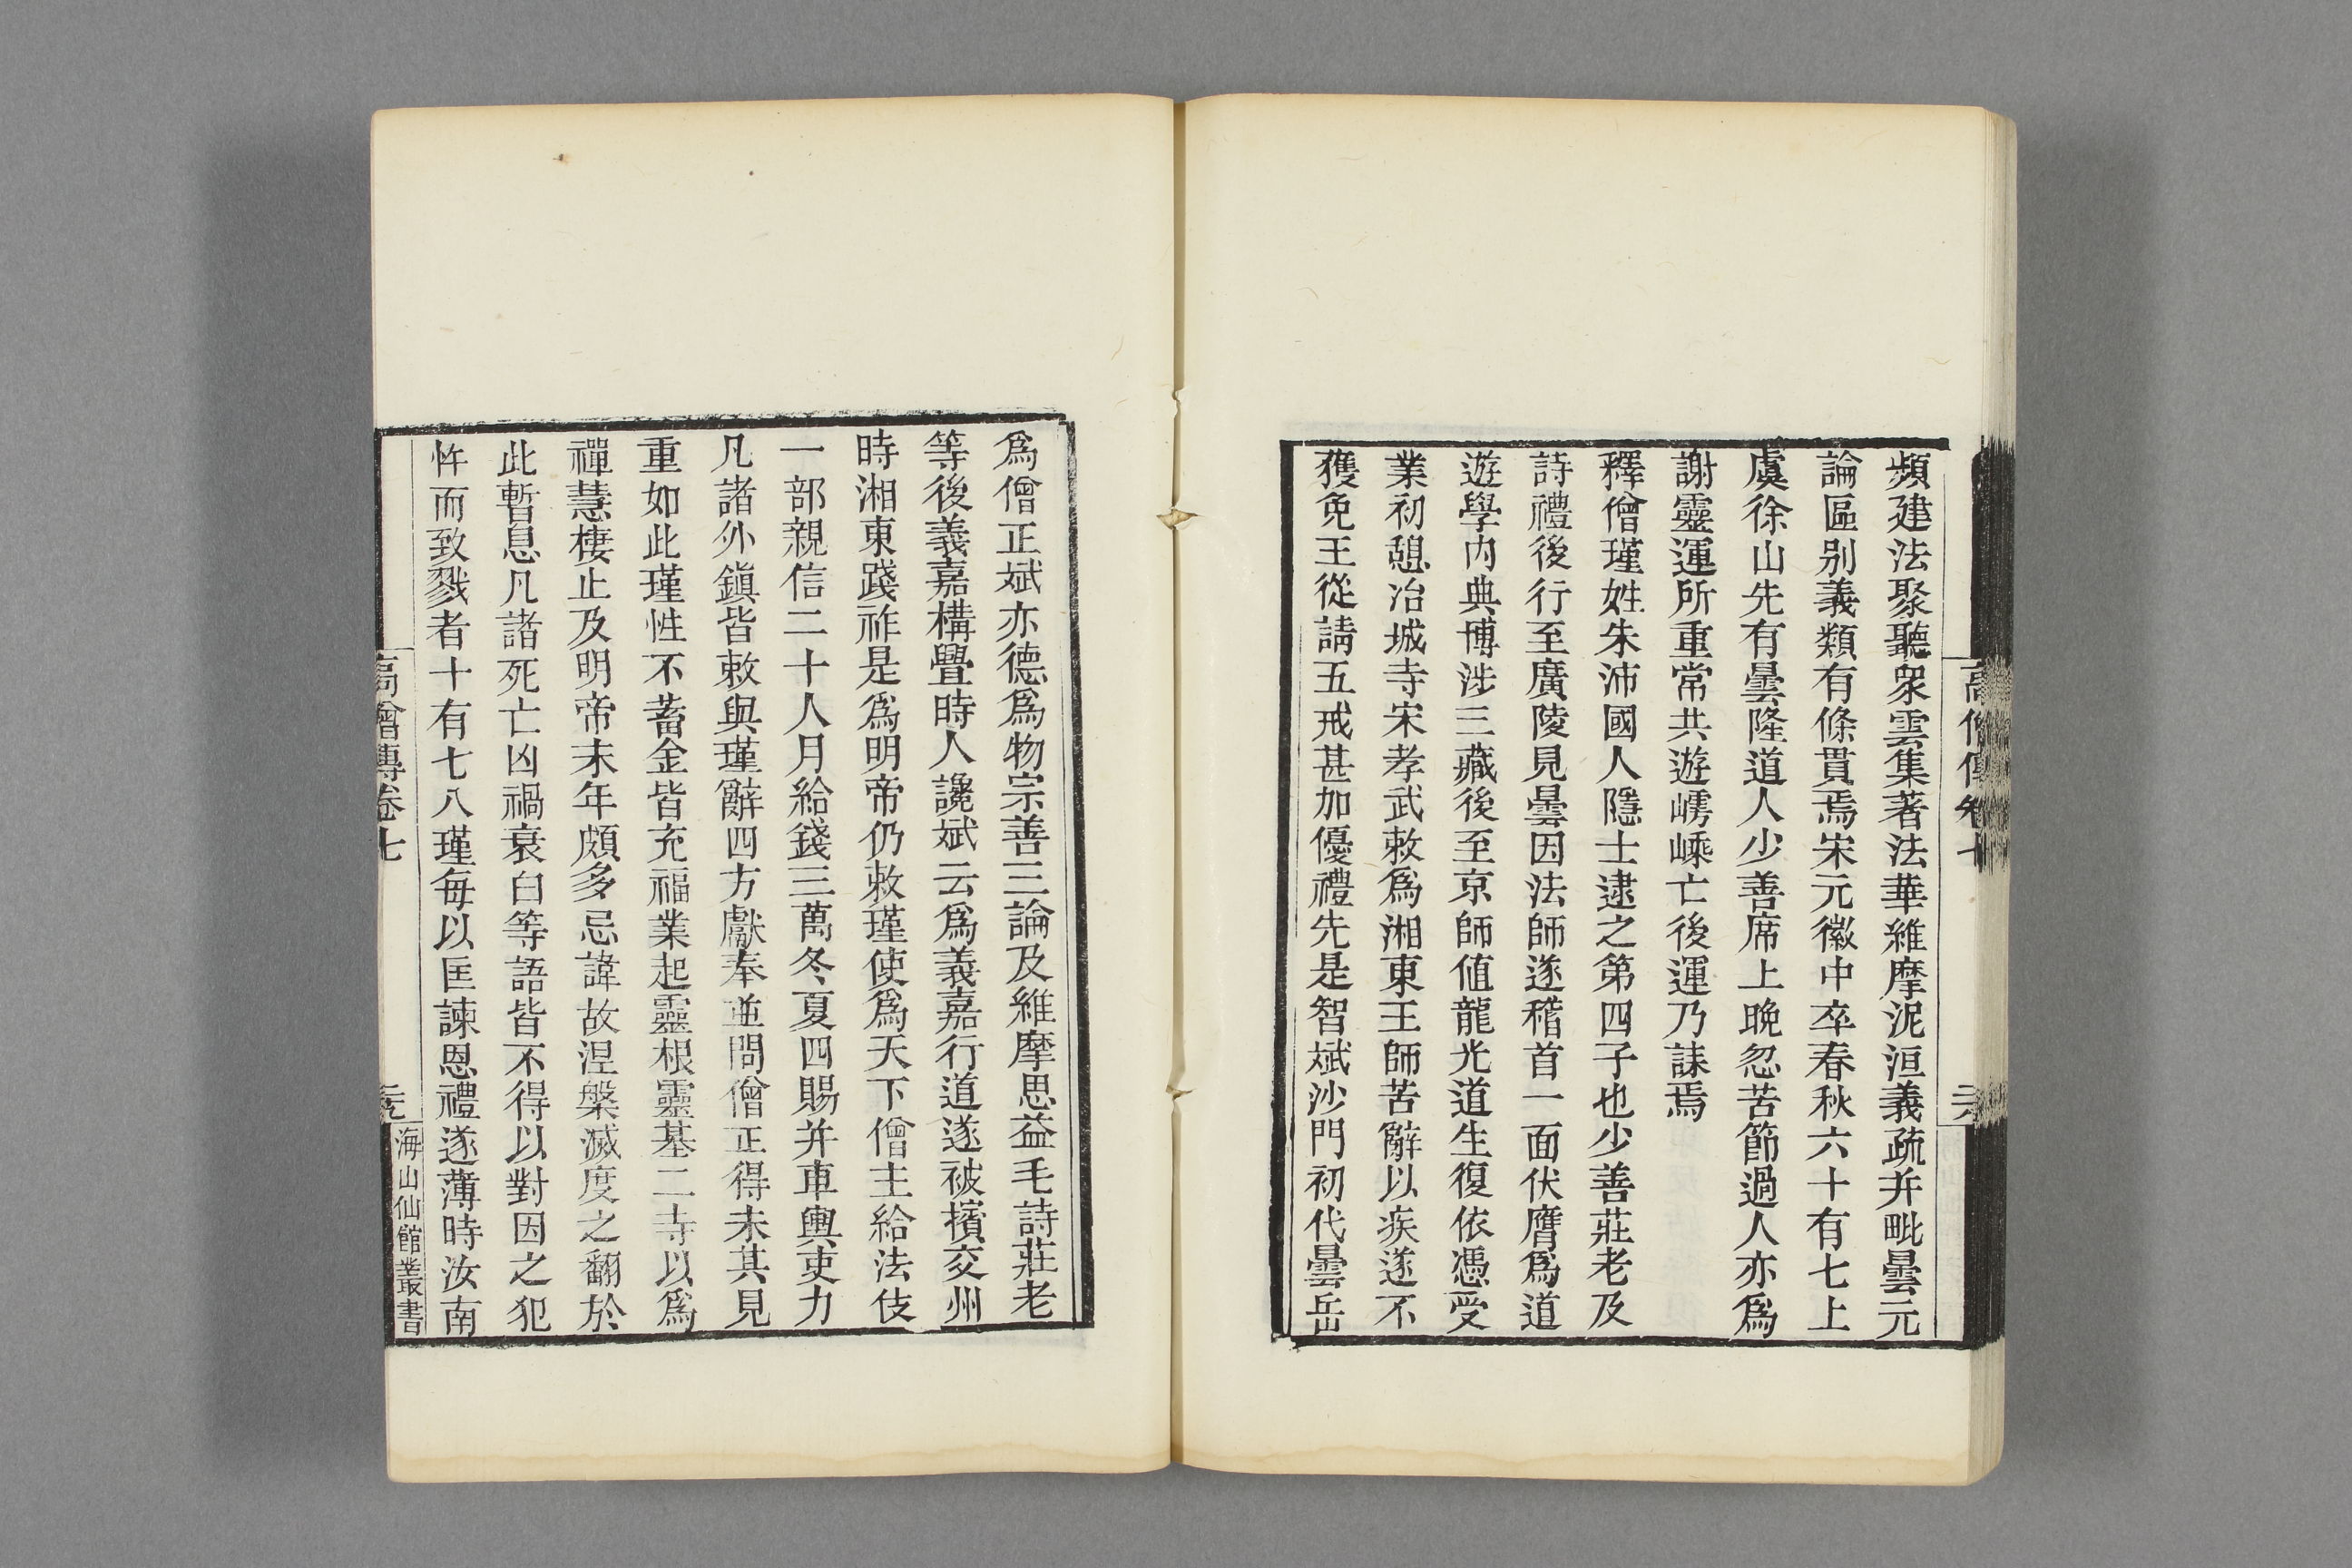 高僧傳卷七
頻建法聚聽衆雲集著法華維摩泥洹義疏并毗曇元
論區别義類有條貫焉宋元徽中卒春秋六十有七上
虞徐山先有曇隆道人少善席上晚忽苦節過人亦爲
謝靈運所重常共遊嶀嵊亡後運乃誄焉
釋僧瑾姓朱沛國人隱士逮之第四子也少善莊老及
詩禮後行至廣陵見曇因法師遂稽首一面伏膺爲道
遊學内典博涉三藏後至京師値龍光道生復依憑受
業初憩冶城寺宋孝武敕爲湘東王師苦辭以疾遂不
獲免王從請五戒甚加優禮先是智斌沙門初代曇岳
爲僧正斌亦德爲物宗善三論及維摩思益毛詩莊老
等後義嘉構舋時人讒斌云爲義嘉行道遂被擯交州
時湘東踐祚是爲明帝仍敕瑾使爲天下僧主給法伎
一部親信二十人月給錢三萬冬夏四賜并車輿吏力
凡諸外鎭皆敕與瑾辭四方獻奉並問僧正得未其見
重如此瑾性不蓄金皆充福業起靈根靈基二寺以爲
禪慧棲止及明帝末年頗多忌諱故涅槃滅度之翻於
此暫息凡諸死亡凶禍衰白等語皆不得以對因之犯
忤而致戮者十有七八瑾每以匡諫恩禮遂薄時汝南
高僧傳卷七
海山仙館叢書